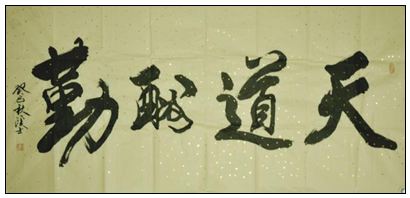 天道酬勤
癸巳秋